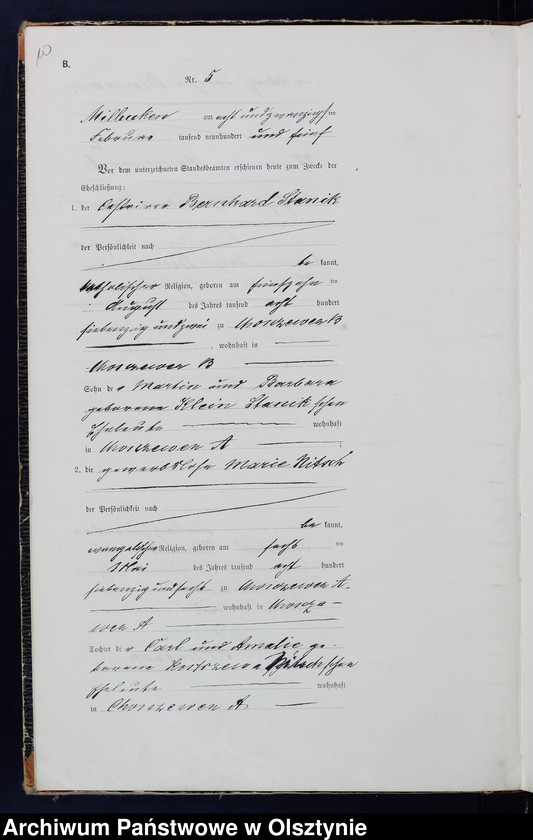 B.
Nr. 5
am acht und zwanzigsten
Februar tausend neunhundert und fünf
Vor dem unterzeichneten Standesbeamten erschienen heute zum Zwecke der
Eheschließung:
1. der Bernhard Stanik
der Persönlichkeit nach
be kannt,
katholischer Religion, geboren am fünfzehn ten
August des Jahres tausend acht hundert
siebenzig und zwei zu B
, wohnhaft in
B
Sohn der Martin und Barbara
geborene Klein Stanik schen
Eheleute wohnhaft
in A
2. die gewerbslose Marie Nitsch
der Persönlichkeit nach
be kannt,
evangelischer Religion, geboren am sechs ten
Mai des Jahres tausend acht hundert
siebenzig und sechs zu A.
wohnhaft in
A
Tochter der Carl und Amalie ge-
borene Nitsch schen
Eheleute wohnhaft
in A
Archiwum Państwowe w Olsztynie